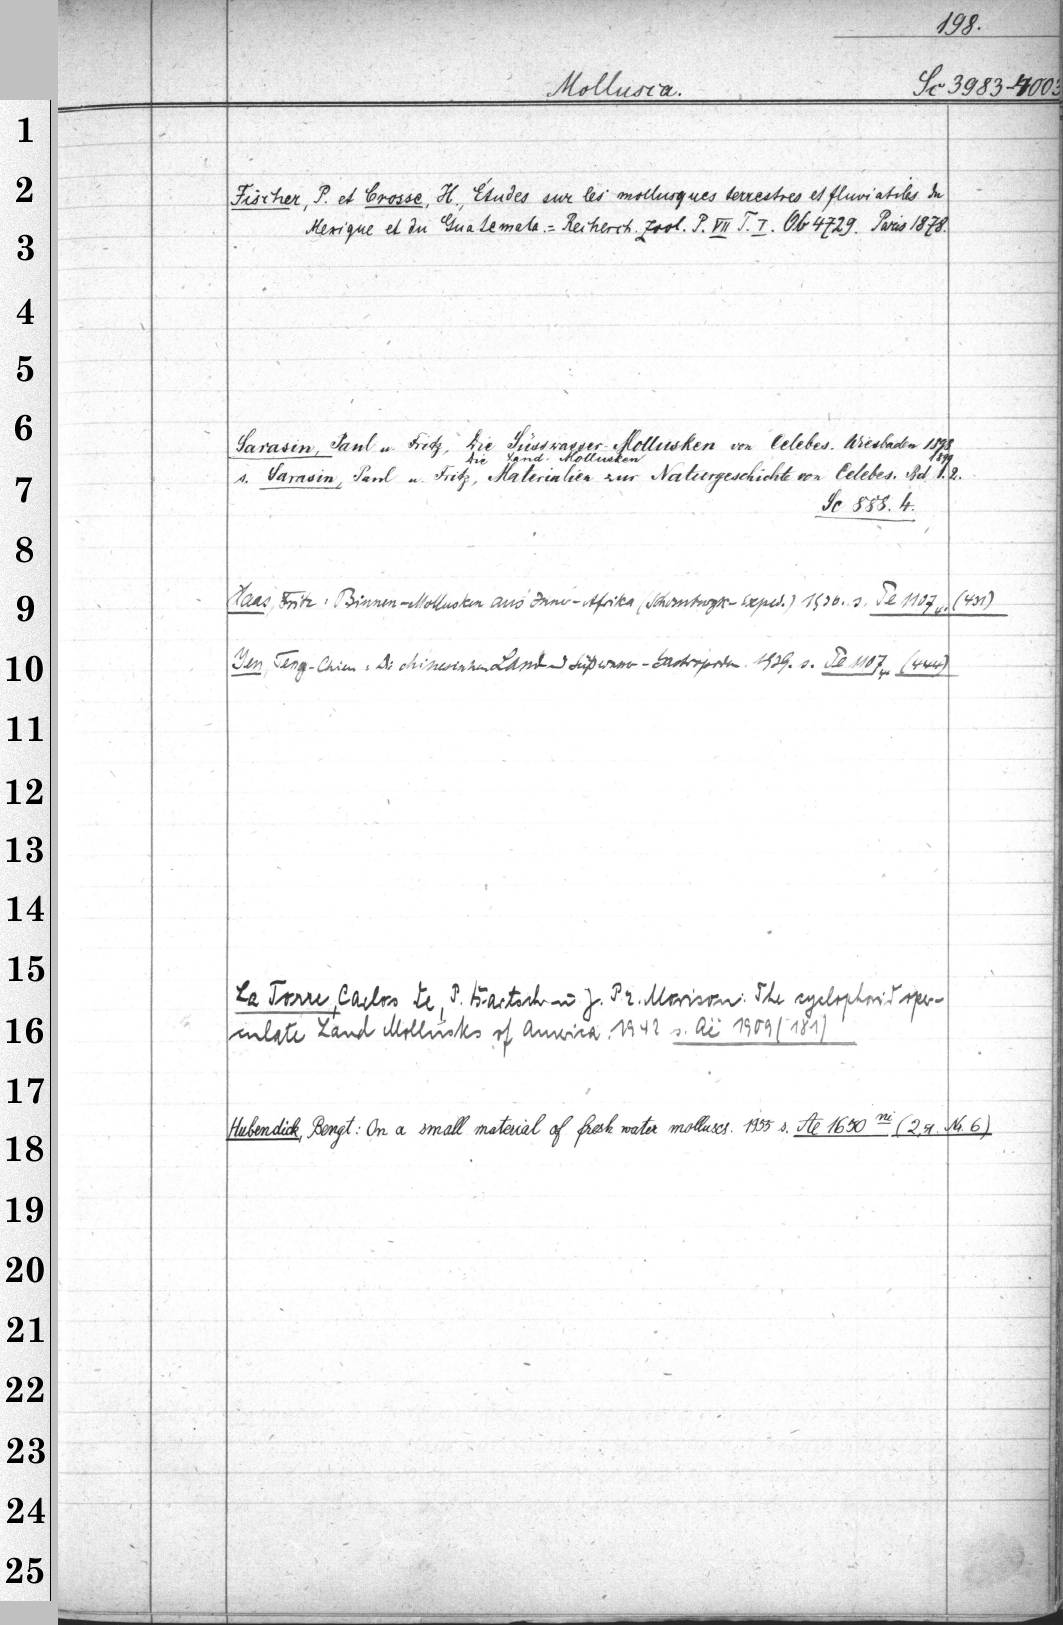 198.
Mollusca. Sc 3983-4003
1
2
Fischer, P. et Crosse, H., Études sur les mollusques terrestres et fluviatiles du
Mexique et du Guatemala. = Recherch. zool. P. VII T. I. Ob 4729. Paris 1878.
3
4
5
6
Sarasin, Paul u. Fritz, Die Süsswasser-Mollusken von Celebes. Wiesbaden 1898
Die Land-Mollusken 1899
s. Sarasin, Paul u. Fritz, Materialien zur Naturgeschichte von Celebes. Bd 1.2.
7
Sc 888. 4.
8
9
Haas, Fritz: Binnen-Mollusken aus Inner-Afrika (Schomburgk-Exped.) 1936. s. Te 1107 (431)
10
Yen, Teng-Chien: Die chinesischen Land- und Süßwasser-Gastropoden. 1939. s. Te 1107 (444)
11
12
13
14
15
La Torre, Carlos de, P. Bartsch u J. P. E. Morison: The cyclophorid oper-
16
culate Land Mollusks of America. 1942 s. Aë 1909 (181)
17
18
Hubendick, Bengt: On a small material of fresh water molluscs. 1955 s. Ae 1650 ni (2, Nr. 6)
19
20
21
22
23
24
25